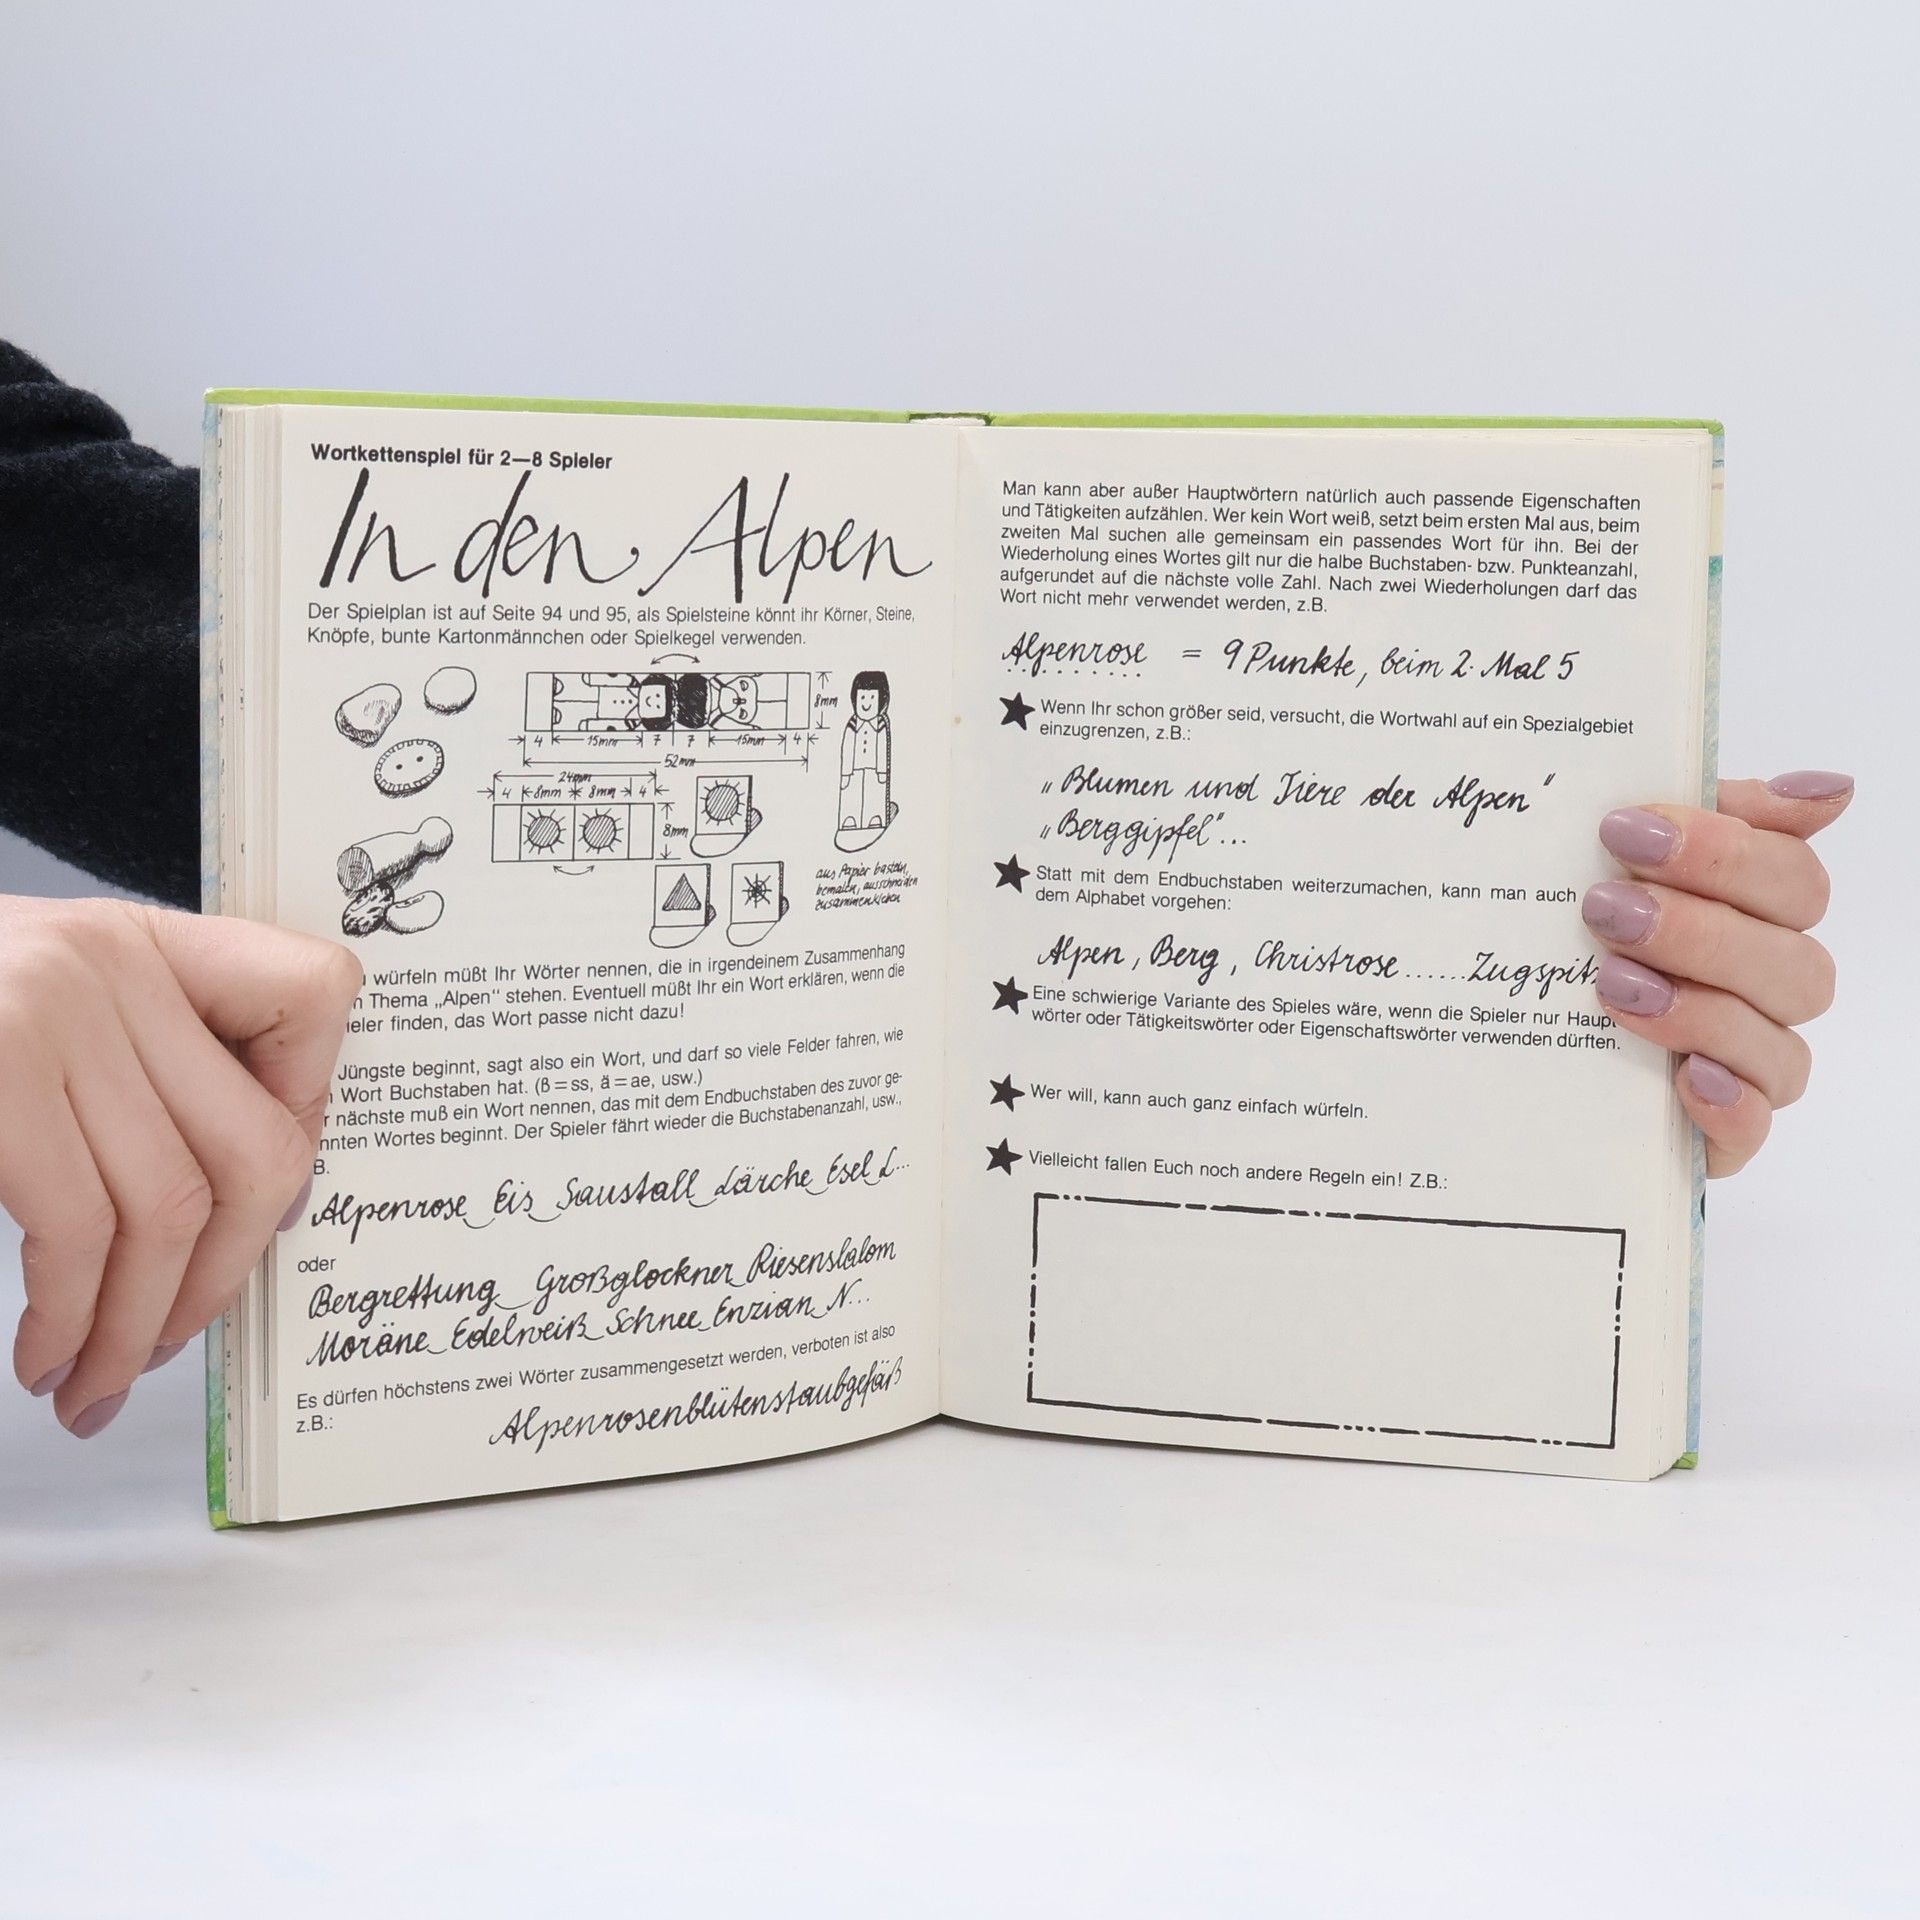 Wortkettenspiel für 2—8 Spieler
In den Alpen
Der Spielplan ist auf Seite 94 und 95, als Spielsteine könnt ihr Körner, Steine,
Knöpfe, bunte Kartonmännchen oder Spielkegel verwenden.
8mm
4 15mm 7 7 15mm 4
52mm
24mm
4 8mm 8mm 4
8mm
aus Papier basteln,
bemalen, ausschneiden
zusammenkleben
würfeln müßt Ihr Wörter nennen, die in irgendeinem Zusammenhang
Thema „Alpen“ stehen. Eventuell müßt Ihr ein Wort erklären, wenn die
finden, das Wort passe nicht dazu!
Jüngste beginnt, sagt also ein Wort, und darf so viele Felder fahren, wie
Wort Buchstaben hat. (ß=ss, ä=ae, usw.)
nächste muß ein Wort nennen, das mit dem Endbuchstaben des zuvor ge-
nnten Wortes beginnt. Der Spieler fährt wieder die Buchstabenanzahl, usw.,
B.
Alpenrose Eis Saustall Lärche Esel L...
oder
Bergrettung Großglockner Riesenslalom
Moräne Edelweiß Schnee Enzian N...
Es dürfen höchstens zwei Wörter zusammengesetzt werden, verboten ist also
z.B.:
Alpenrosenblütenstaubgefäß
Man kann aber außer Hauptwörtern natürlich auch passende Eigenschaften
und Tätigkeiten aufzählen. Wer kein Wort weiß, setzt beim ersten Mal aus, beim
zweiten Mal suchen alle gemeinsam ein passendes Wort für ihn. Bei der
Wiederholung eines Wortes gilt nur die halbe Buchstaben- bzw. Punkteanzahl,
aufgerundet auf die nächste volle Zahl. Nach zwei Wiederholungen darf das
Wort nicht mehr verwendet werden, z.B.
Alpenrose = 9 Punkte, beim 2. Mal 5
Wenn Ihr schon größer seid, versucht, die Wortwahl auf ein Spezialgebiet
einzugrenzen, z.B.:
„Blumen und Tiere der Alpen"
„Berggipfel"...
Statt mit dem Endbuchstaben weiterzumachen, kann man auch
dem Alphabet vorgehen:
Alpen, Berg, Christrose......Zugspitz
Eine schwierige Variante des Spieles wäre, wenn die Spieler nur Haupt-
wörter oder Tätigkeitswörter oder Eigenschaftswörter verwenden dürften.
Wer will, kann auch ganz einfach würfeln.
Vielleicht fallen Euch noch andere Regeln ein! Z.B.: